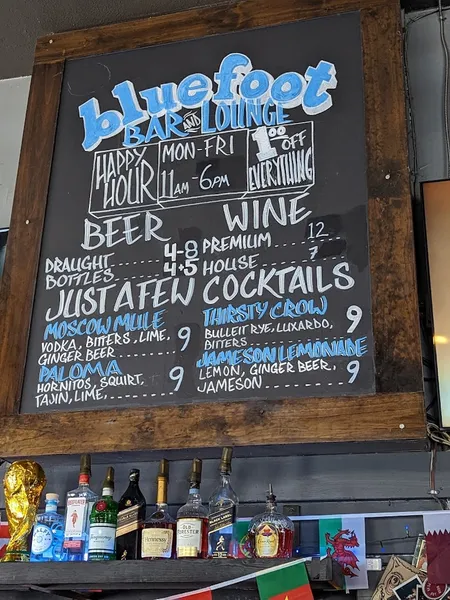 bluefoot
BAR AND LOUNGE
HAPPY HOUR
MON-FRI
11AM-6PM
1.00 OFF EVERYTHING
BEER
DRAUGHT 4-8
BOTTLES 4+5
WINE
PREMIUM 12
HOUSE 7
JUST A FEW COCKTAILS
MOSCOW MULE
VODKA, BITTERS, LIME,
GINGER BEER 9
PALOMA
HORNITOS, SQUIRT,
TAJIN, LIME, 9
THIRSTY CROW
BULLEIT RYE, LUXARDO,
BITTERS 9
JAMESON LEMONADE
LEMON, GINGER BEER,
JAMESON 9
BEEFEATER
Hennessy
OLD FORESTER